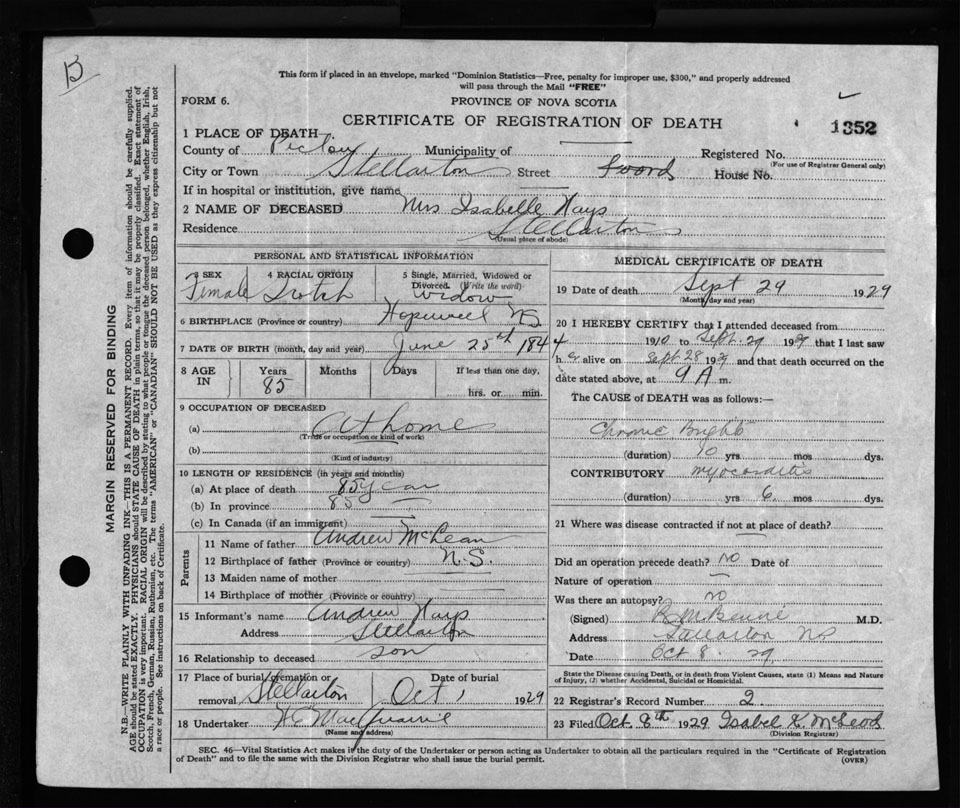 B
This form if placed in an envelope, marked "Dominion Statistics—Free, penalty for improper use, $300," and properly addressed
will pass through the Mail "FREE"
FORM 6.
PROVINCE OF NOVA SCOTIA
CERTIFICATE OF REGISTRATION OF DEATH
1352
1 PLACE OF DEATH
County of Pictou Municipality of Registered No.
(For use of Registrar General only)
City or Town Stellarton Street Foord House No.
If in hospital or institution, give name
2 NAME OF DECEASED Mrs Isabelle Hays
Residence Stellarton
(Usual place of abode)
PERSONAL AND STATISTICAL INFORMATION
3 SEX 4 RACIAL ORIGIN 5 Single, Married, Widowed or
Divorced. (Write the word)
Female Scotch Widow
6 BIRTHPLACE (Province or country) Hopewell N.S.
7 DATE OF BIRTH (month, day and year) June 25th 1844
8 AGE IN Years Months Days If less than one day,
85 hrs. or min.
9 OCCUPATION OF DECEASED
(a) At home
(Trade or occupation or kind of work)
(b)
(Kind of industry)
10 LENGTH OF RESIDENCE (in years and months)
(a) At place of death 85 year
(b) In province 85
(c) In Canada (if an immigrant)
Parents
11 Name of father Andrew McLean
12 Birthplace of father (Province or country) N.S.
13 Maiden name of mother
14 Birthplace of mother (Province or country)
15 Informant's name Andrew Hays
Address Stellarton
16 Relationship to deceased son
17 Place of burial, cremation or removal Stellarton Date of burial Oct 1 1929
18 Undertaker
(Name and address)
MEDICAL CERTIFICATE OF DEATH
19 Date of death Sept 29 1929
(Month, day and year)
20 I HEREBY CERTIFY that I attended deceased from
1910 to Sept. 29 1929 that I last saw
her alive on Sept 28 1929 and that death occurred on the
date stated above, at 9 A m.
The CAUSE of DEATH was as follows:—
Chronic Brights
(duration) 10 yrs. mos dys.
CONTRIBUTORY Myocarditis
(duration) yrs 6 mos dys.
21 Where was disease contracted if not at place of death?
Did an operation precede death? No Date of
Nature of operation
Was there an autopsy? no
(Signed) M.D.
Address Stellarton NS
Date Oct 8. 29
State the Disease causing Death, or in death from Violent Causes, state (1) Means and Nature
of Injury, (2) whether Accidental, Suicidal or Homicidal.
22 Registrar's Record Number 2.
23 Filed Oct. 8th 1929 Isabel K. McLeod
(Division Registrar)
SEC. 46—Vital Statistics Act makes it the duty of the Undertaker or person acting as Undertaker to obtain all the particulars required in the "Certificate of Registration
of Death" and to file the same with the Division Registrar who shall issue the burial permit.
(OVER)
MARGIN RESERVED FOR BINDING
N.B.—WRITE PLAINLY WITH UNFADING INK—THIS IS A PERMANENT RECORD. Every item of information should be carefully supplied.
AGE should be stated EXACTLY. PHYSICIANS should STATE CAUSE OF DEATH in plain terms, so that it may be properly classified. Exact statement of
OCCUPATION is very important. RACIAL ORIGIN will be described by stating to what people or tongue the deceased person belonged, whether English, Irish,
Scotch, French, German, Russian, Ruthenian, etc. The terms "AMERICAN" or "CANADIAN" SHOULD NOT BE USED as they express citizenship but not
a race or people. See instructions on back of Certificate.